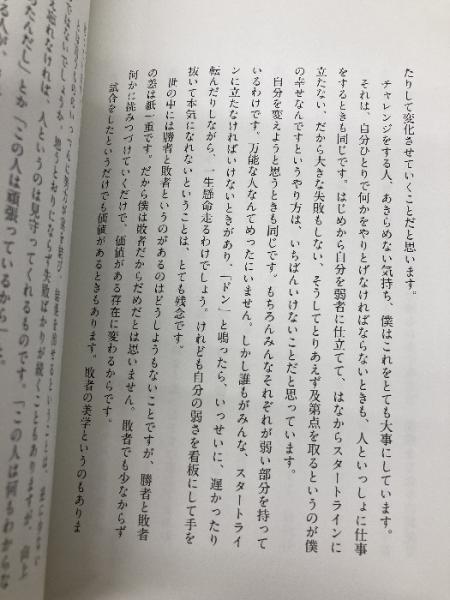 たりして変化させていくことだと思います。
チャレンジをする人、あきらめない気持ち、僕はこれをとても大事にしています。
それは、自分ひとりで何かをやりとげなければならないときも、人といっしょに仕事
をするときも同じです。はじめから自分を弱者に仕立てて、はなからスタートラインに
立たない、だから大きな失敗もしない、そうしてとりあえず及第点を取るというのが僕
の幸せなんですというやり方は、いちばんいけないことだと思っています。
自分を変えようと思うときも同じです。もちろんみんなそれぞれが弱い部分を持って
いるわけです。万能な人なんてめったにいません。しかし誰もがみんな、スタートライ
ンに立たなければいけないときがあり、「ドン」と鳴ったら、いっせいに、遅かったり
転んだりしながら、一生懸命走るわけでしょう。けれども自分の弱さを看板にして手を
抜いて本気になれないということは、とても残念です。
世の中には勝者と敗者というのがあるのはどうしようもないことですが、勝者と敗者
の差は紙一重です。だから僕は敗者だからだめだとは思いません。敗者でも少なからず
何かに挑みつづけていくだけで、価値がある存在に変わるからです。
試合をしたというだけでも価値があるときもあります。敗者の美学というのもありま
ではないでしょうか。思うとおりにならず失敗ばかりが続くこともありますが、
忘れなければ、人というのは見守ってくれるものです。「この人は何もわからな
ったんだし」とか「この人は頑張っているから」と、
る人が